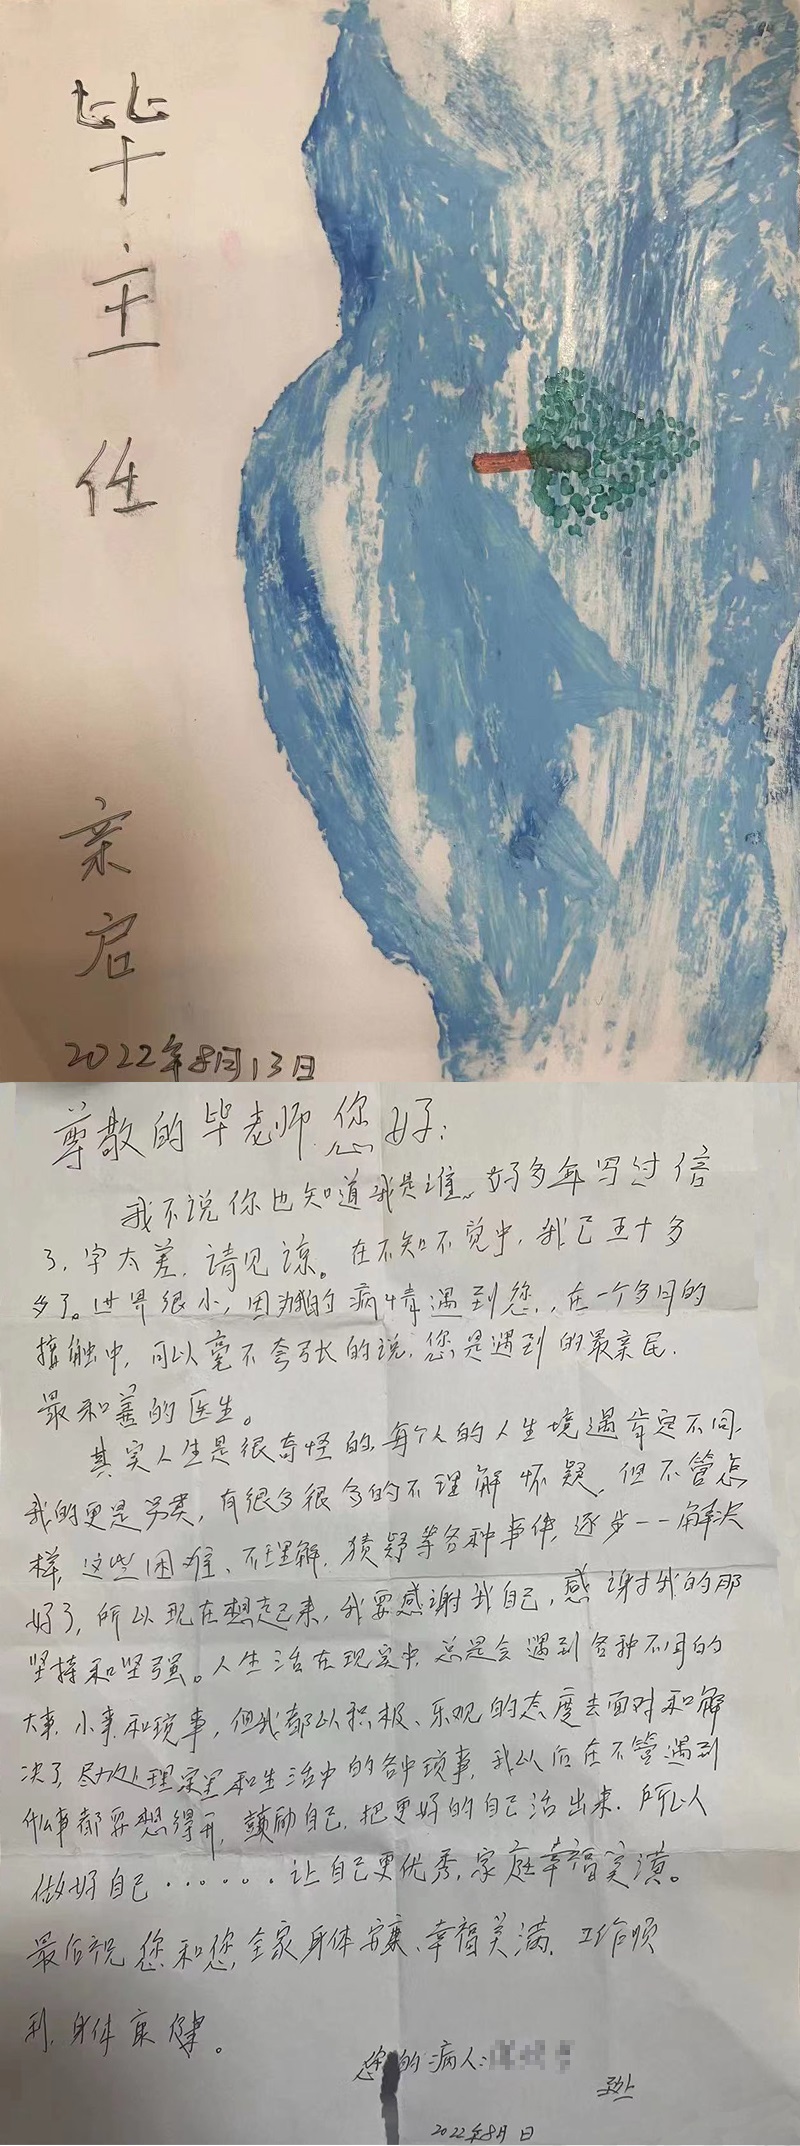 毕主任
亲启
2022年8月13日
尊敬的毕老师您好:
我不说你也知道我是谁。好多年写过信
了,字太差,请见谅。在不知不觉中,我已五十多
多了。世界很小,因为我的病情遇到您,在一个多月的
接触中,可以毫不夸张的说,您是遇到的最亲民.
最和蔼的医生。
其实人生是很奇怪的,每个人的人生境遇肯定不同.
我的更是另类,有很多很多的不理解怀疑,但不管怎
样,这些困难、不理解,猜疑等各种事件,逐步一一解决
好了,所以现在想起来,我要感谢我自己,感谢对我的那
坚持和坚强。人生活在现实中,总是会遇到各种不同的
大事,小事和琐事,但我都以积极、乐观的态度去面对和解
决了,尽力处理家里和生活中的各中琐事,我以后在不管遇到
什么事都要想得开,鼓励自己,把更好的自己活出来.所以人
做好自己······让自己更优秀,家庭幸福美满。
最后祝您和您全家身体安康、幸福美满,工作顺
利,身体康健。
您的病人:
2022年8月 日